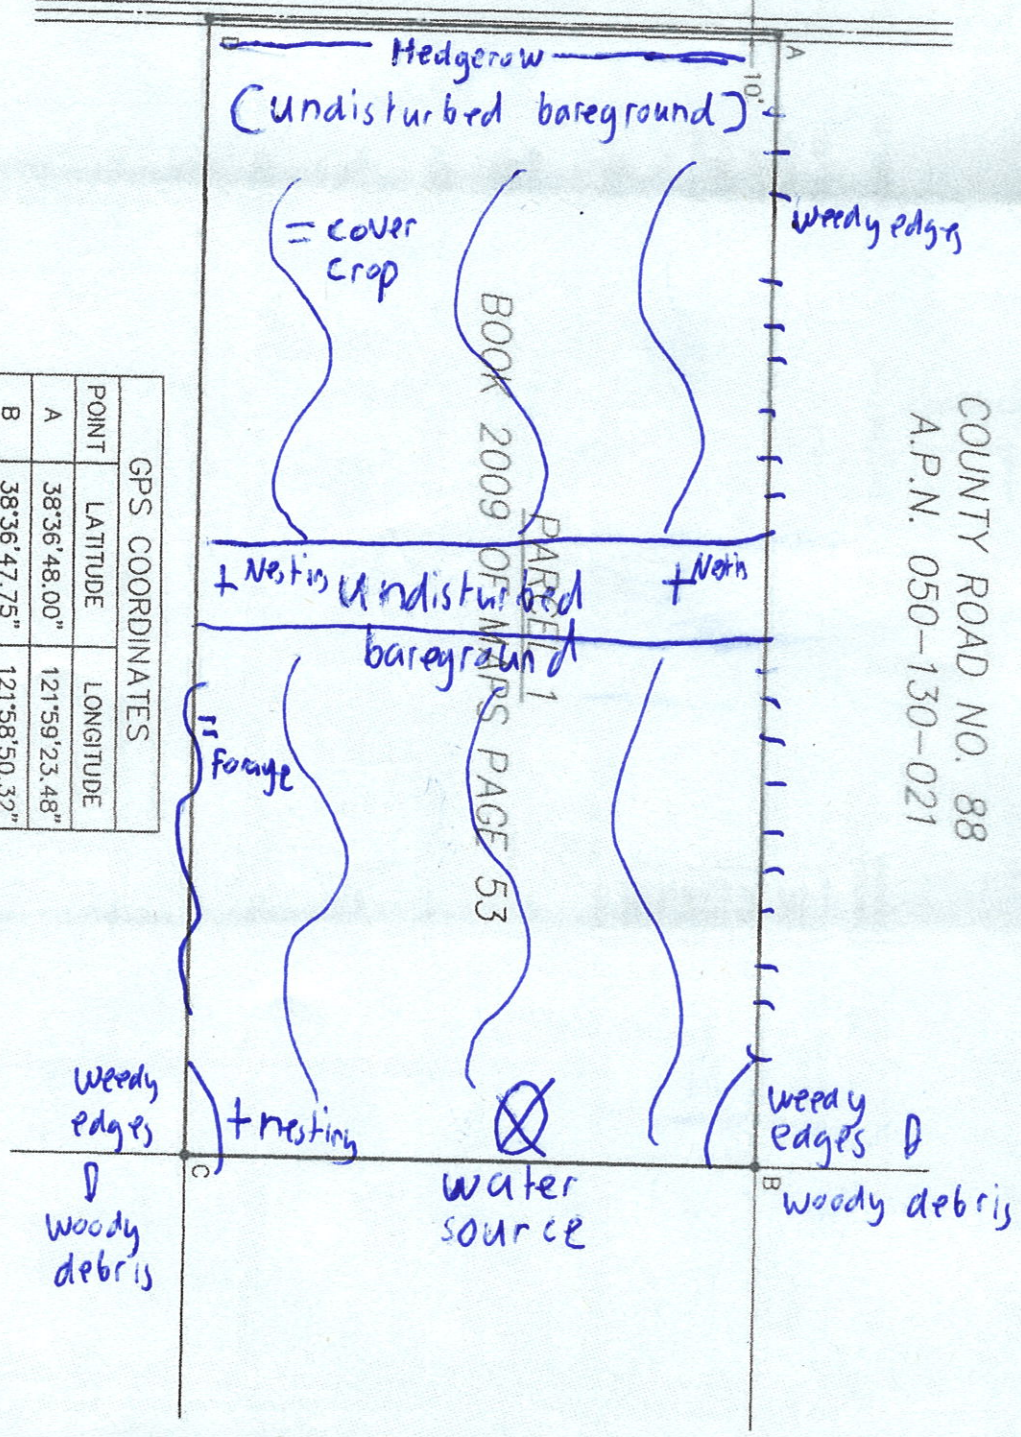 A
D
10'
Hedgerow
(undisturbed bareground)
weedy edges
= cover
crop
COUNTY ROAD NO. 88
A.P.N. 050-130-021
PARCEL 1
BOOK 2009 OF MAPS PAGE 53
+ Nesting
undisturbed
bareground
+ Nestin
= Forage
GPS COORDINATES
POINT LATITUDE LONGITUDE
A 38°36'48.00" 121°59'23.48"
B 38°36'47.75" 121°58'50.32"
weedy
edges
+ nesting
weedy
edges
C
B
water
source
woody debris
woody
debris